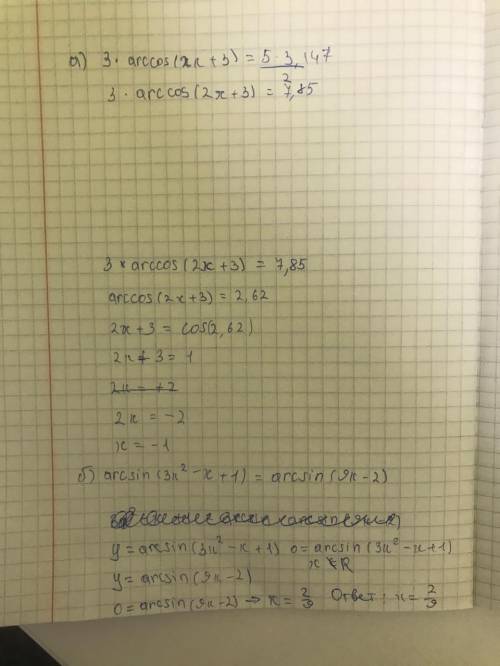 а) 3 · arccos(xx + 3) = 5 · 3,147
2
3 · arccos(2x + 3) = 7,85
3 * arccos(2x + 3) = 7,85
arccos(2x + 3) = 2,62
2x + 3 = cos(2,62)
2x + 3 = 1
2x = +2
2x = -2
x = -1
б) arcsin(3x² - x + 1) = arcsin(9x - 2)
y = arcsin(3x² - x + 1) 0 = arcsin(3x² - x + 1)
y = arcsin(9x - 2) x ∈ R
0 = arcsin(9x - 2) → x = 2/9 Ответ: x = 2/9